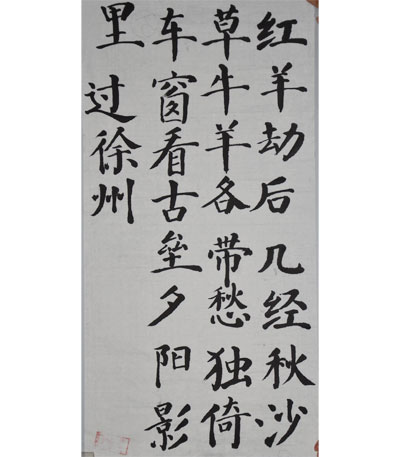 红羊劫后几经秋沙
草牛羊各带愁独倚
车窗看古垒夕阳影
里过徐州